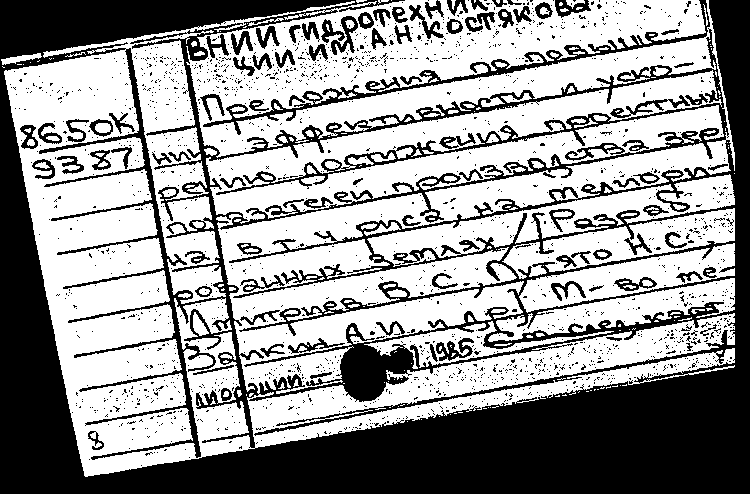 ВНИИ гидротехники
ции им. А.Н. Костякова.
Предложения по повыше-
86.50К
нию эффективности и уско-
9387
рению достижения проектных
показателей производства зер
на, в т. ч. риса, на мелиори-
рованных землях / [Разраб.
Дмитриев В. С., Путято Н. С.,
Заикин А.И. и др.], М-во ме-
лиорации... 1985. См. след. карт
8